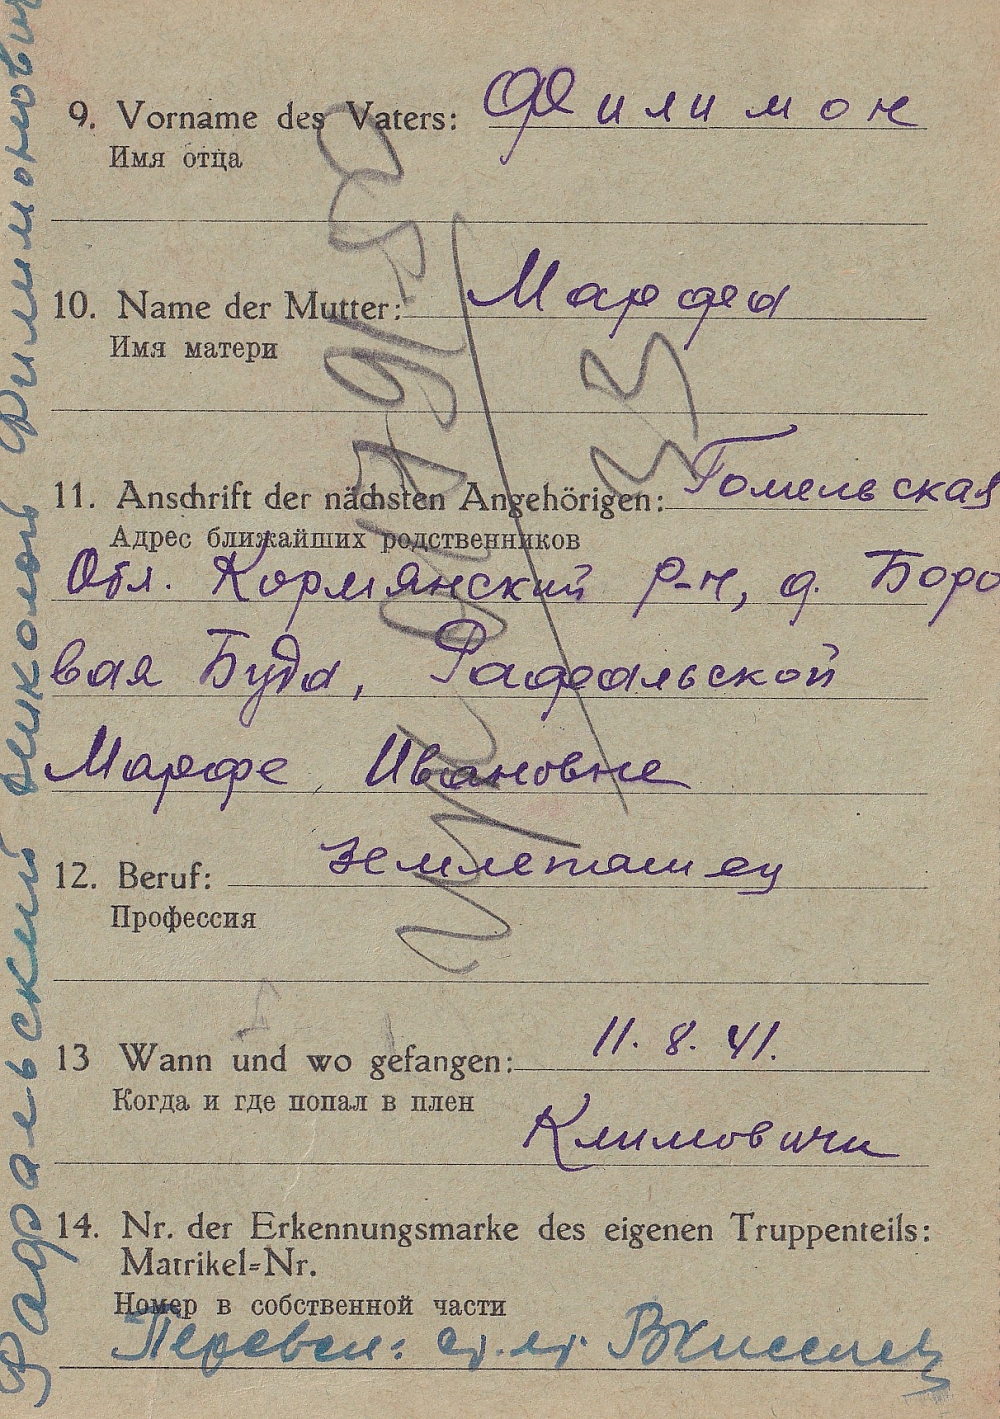 9. Vorname des Vaters: Филимон
Имя отца
10. Name der Mutter: Марфа
Имя матери
11. Anschrift der nächsten Angehörigen: Гомельская
Адрес ближайших родственников
Обл. Кормянский р-н, д. Боро
вая Буда, Рафальской
Марфе Ивановне
12. Beruf: землепашец
Профессия
13 Wann und wo gefangen: 11. 8. 41.
Когда и где попал в плен
Климовичи
14. Nr. der Erkennungsmarke des eigenen Truppenteils:
Matrikel=Nr.
Номер в собственной части
Перевел:
Рафальский Николай Филимонович